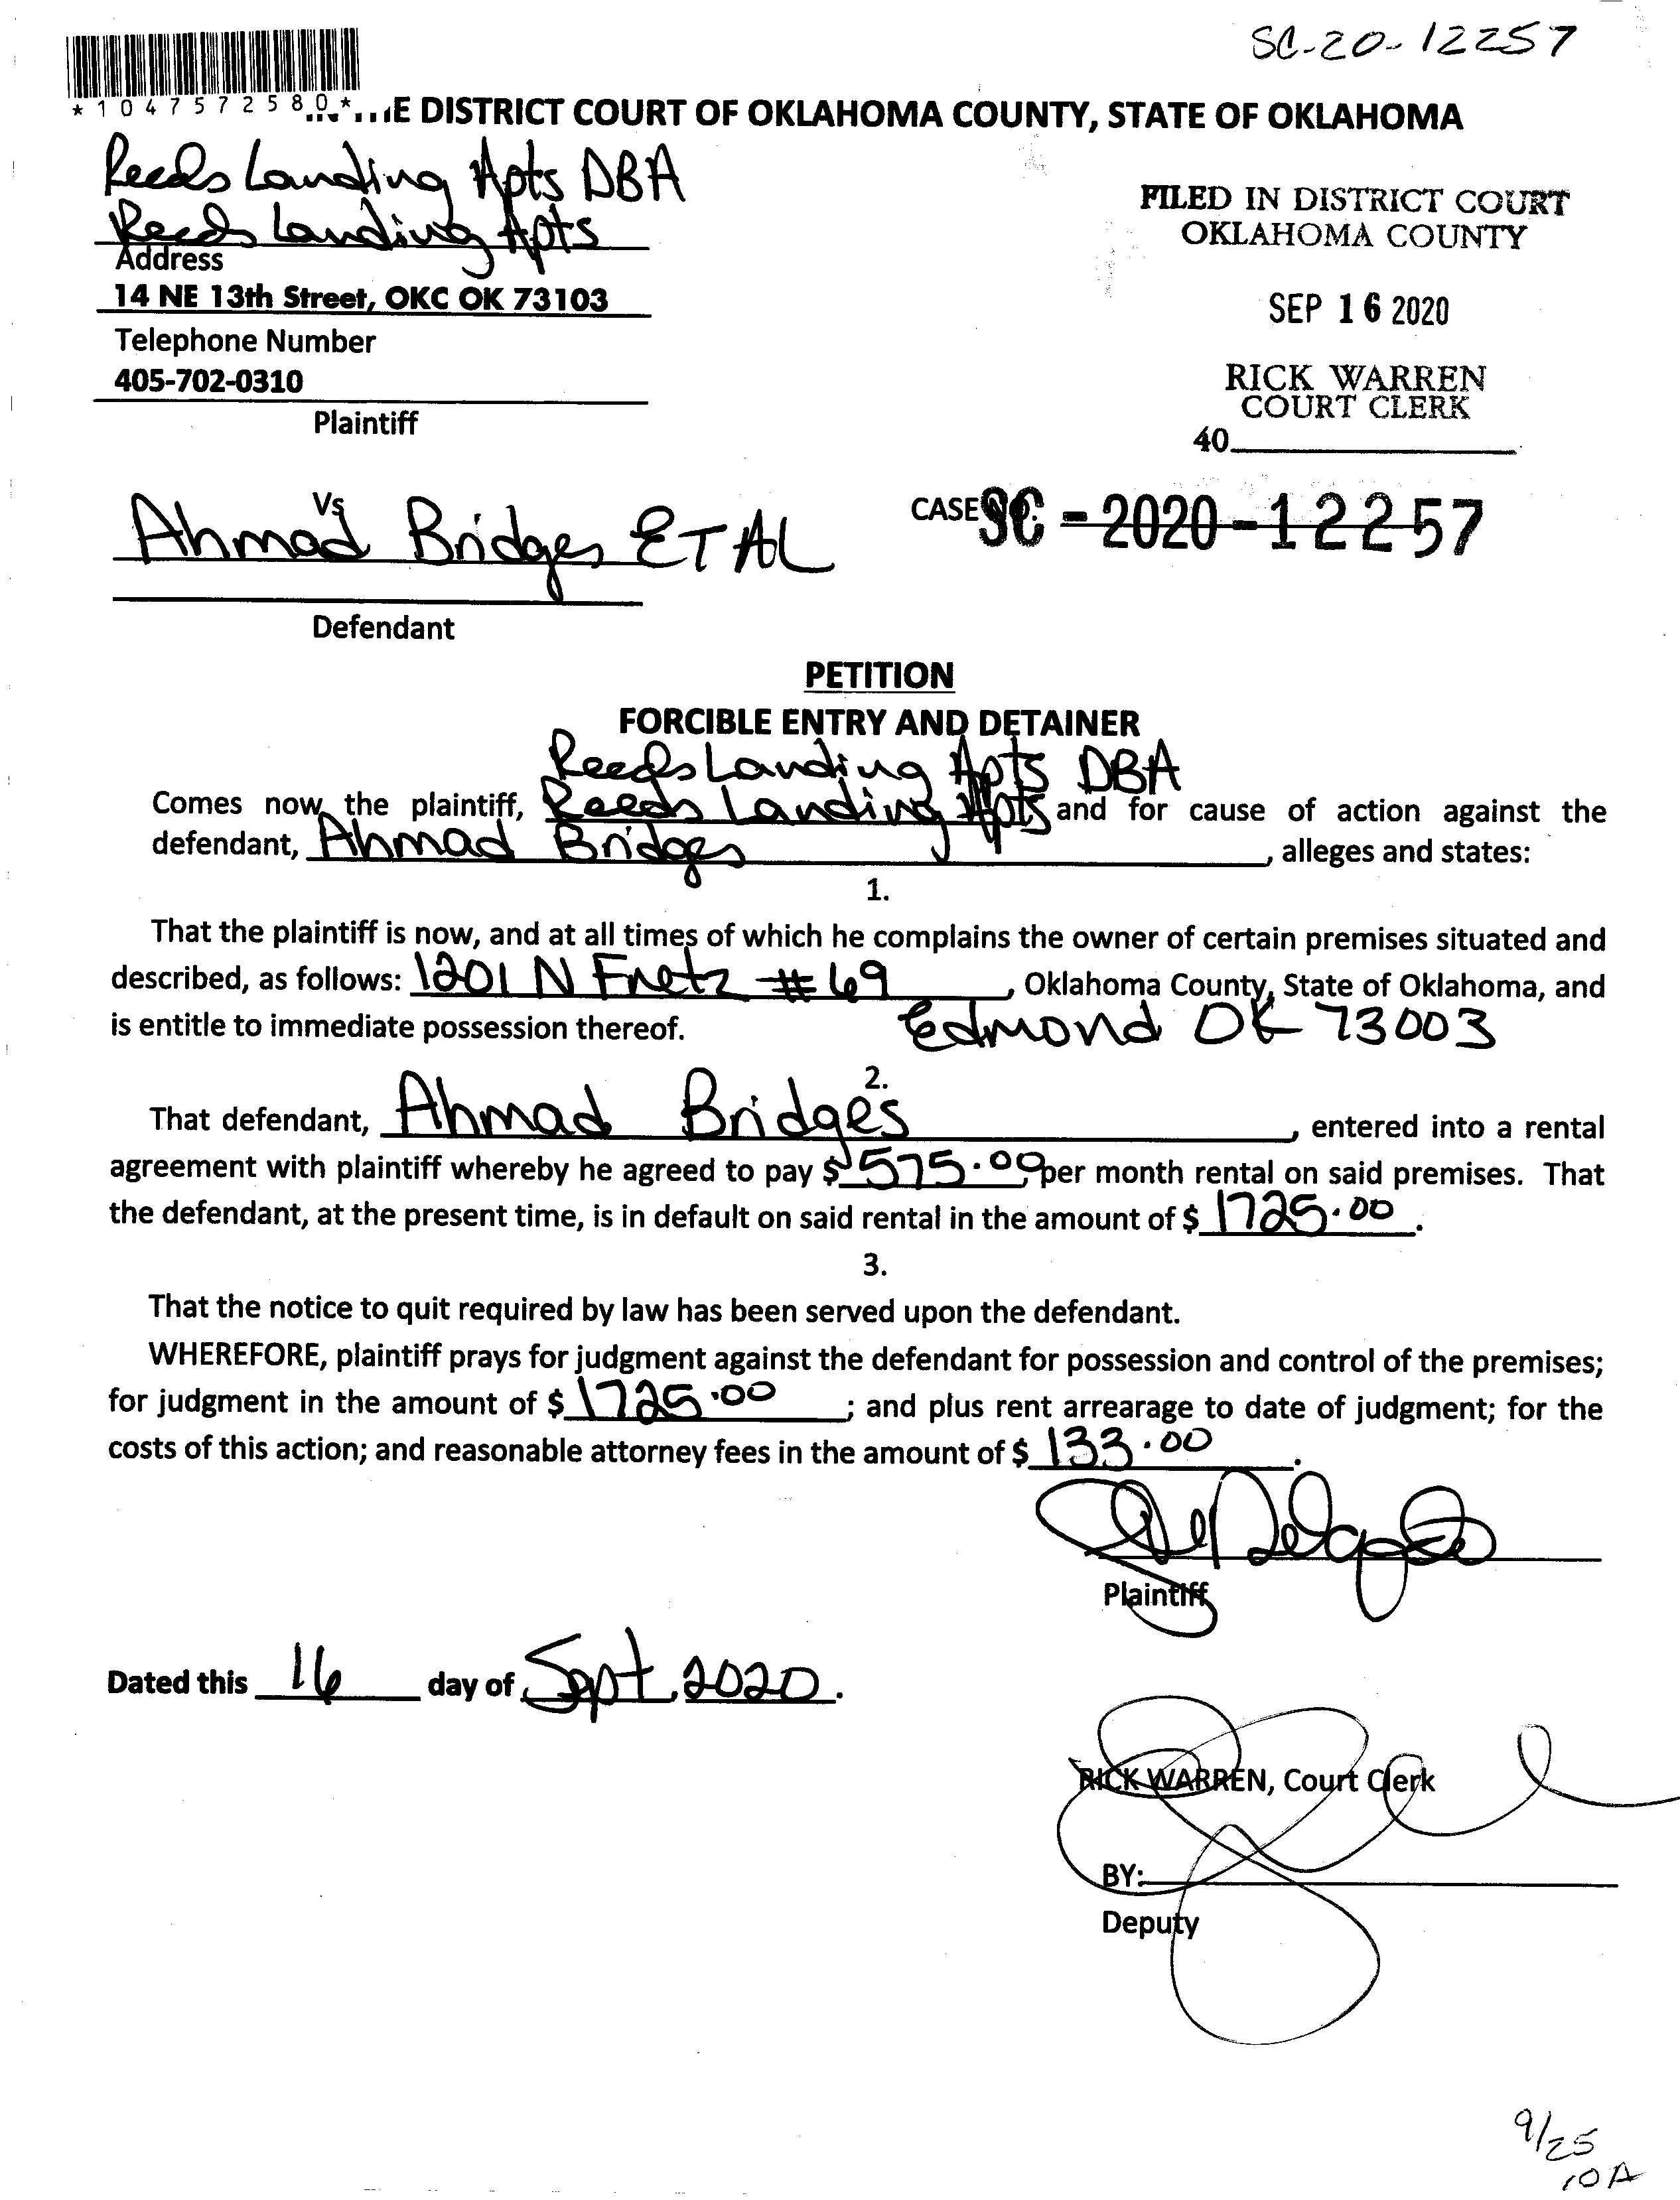 SC-20-12257
*1047572580*
E DISTRICT COURT OF OKLAHOMA COUNTY, STATE OF OKLAHOMA
Reeds Landing Apts DBA
Reeds Landing Apts
Address
14 NE 13th Street, OKC OK 73103
Telephone Number
405-702-0310
Plaintiff
FILED IN DISTRICT COURT
OKLAHOMA COUNTY
SEP 16 2020
RICK WARREN
COURT CLERK
40
Vs
Ahmad Bridges ET AL
Defendant
CASE NO. SC-2020-12257
PETITION
FORCIBLE ENTRY AND DETAINER
Reeds Landing Apts DBA
Comes now the plaintiff, Reeds Landing Apts and for cause of action against the
defendant, Ahmad Bridges, alleges and states:
1.
That the plaintiff is now, and at all times of which he complains the owner of certain premises situated and
described, as follows: 1201 N Fretz #69, Oklahoma County, State of Oklahoma, and
is entitle to immediate possession thereof. Edmond OK 73003
2.
That defendant, Ahmad Bridges, entered into a rental
agreement with plaintiff whereby he agreed to pay $ 575.00, per month rental on said premises. That
the defendant, at the present time, is in default on said rental in the amount of $ 1725.00.
3.
That the notice to quit required by law has been served upon the defendant.
WHEREFORE, plaintiff prays for judgment against the defendant for possession and control of the premises;
for judgment in the amount of $ 1725.00; and plus rent arrearage to date of judgment; for the
costs of this action; and reasonable attorney fees in the amount of $ 133.00.
Plaintiff
Dated this 16 day of Sept, 2020.
RICK WARREN, Court Clerk
BY:
Deputy
9/25
10A